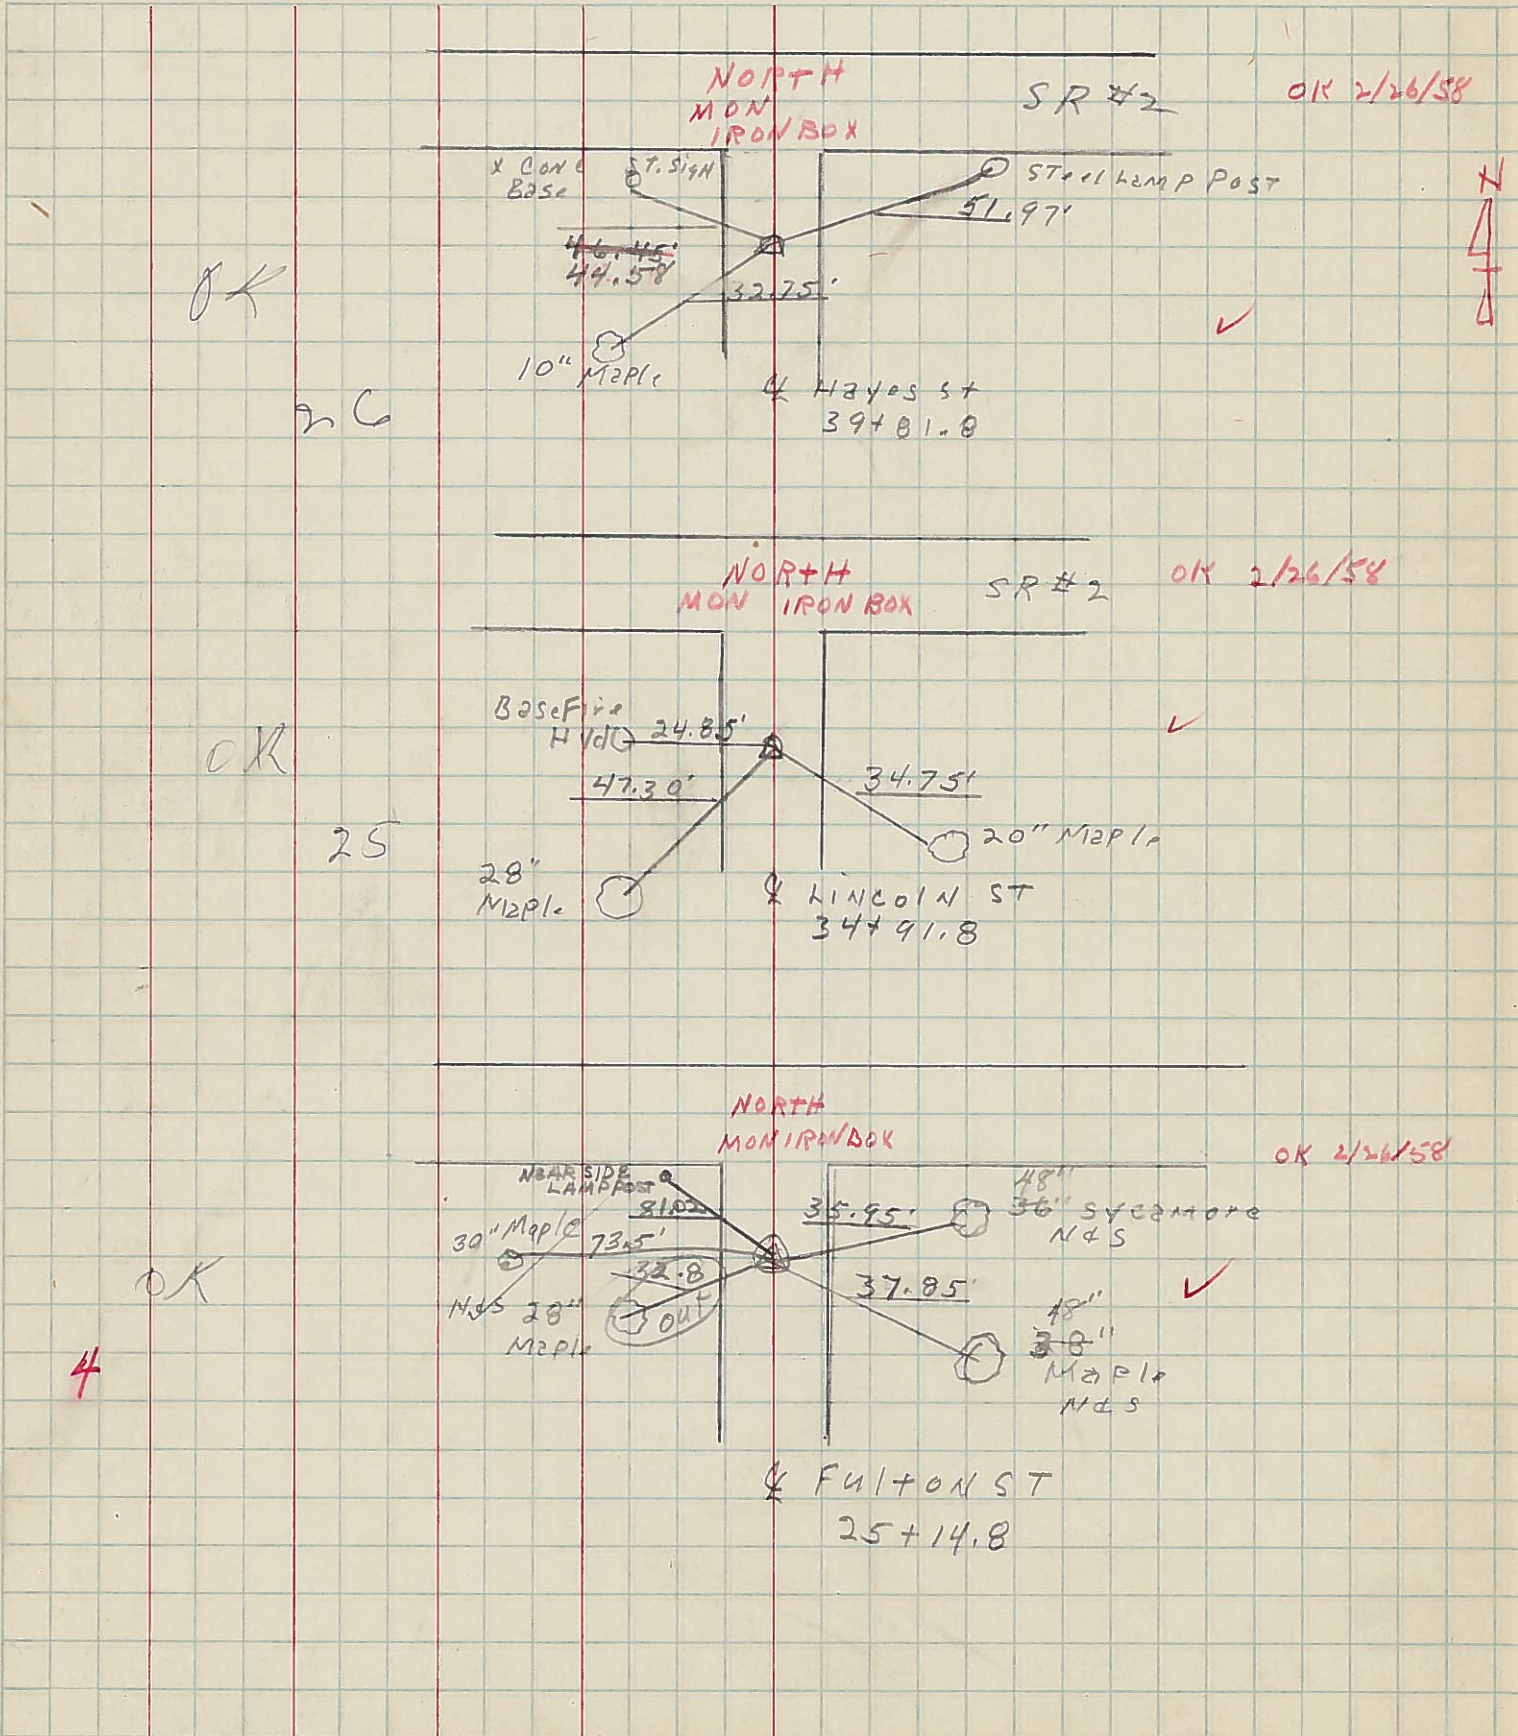 NORTH
MON
IRON BOX
SR #2
OK 2/26/58
N
X CONC
Base
ST. SIGN
STEEL LAMP POST
51.97'
46.45'
44.58
32.75'
OK
10" Maple
26
℄ Hayes St
39+81.8
NORTH
MON IRON BOX
SR #2
OK 2/26/58
Base Fire
Hyd
24.85'
OK
47.30'
34.75'
25
20" Maple
28"
Maple
℄ LINCOLN ST
34+91.8
NORTH
MON IRON BOX
OK 2/26/58
NEAR SIDE
LAMP POST
81.02
48"
35.95'
36" Sycamore
N&S
30" Maple
73.5'
32.8
OK
37.85'
N&S
28"
Maple
out
48"
38"
Maple
N&S
4
℄ FULTON ST
25+14.8